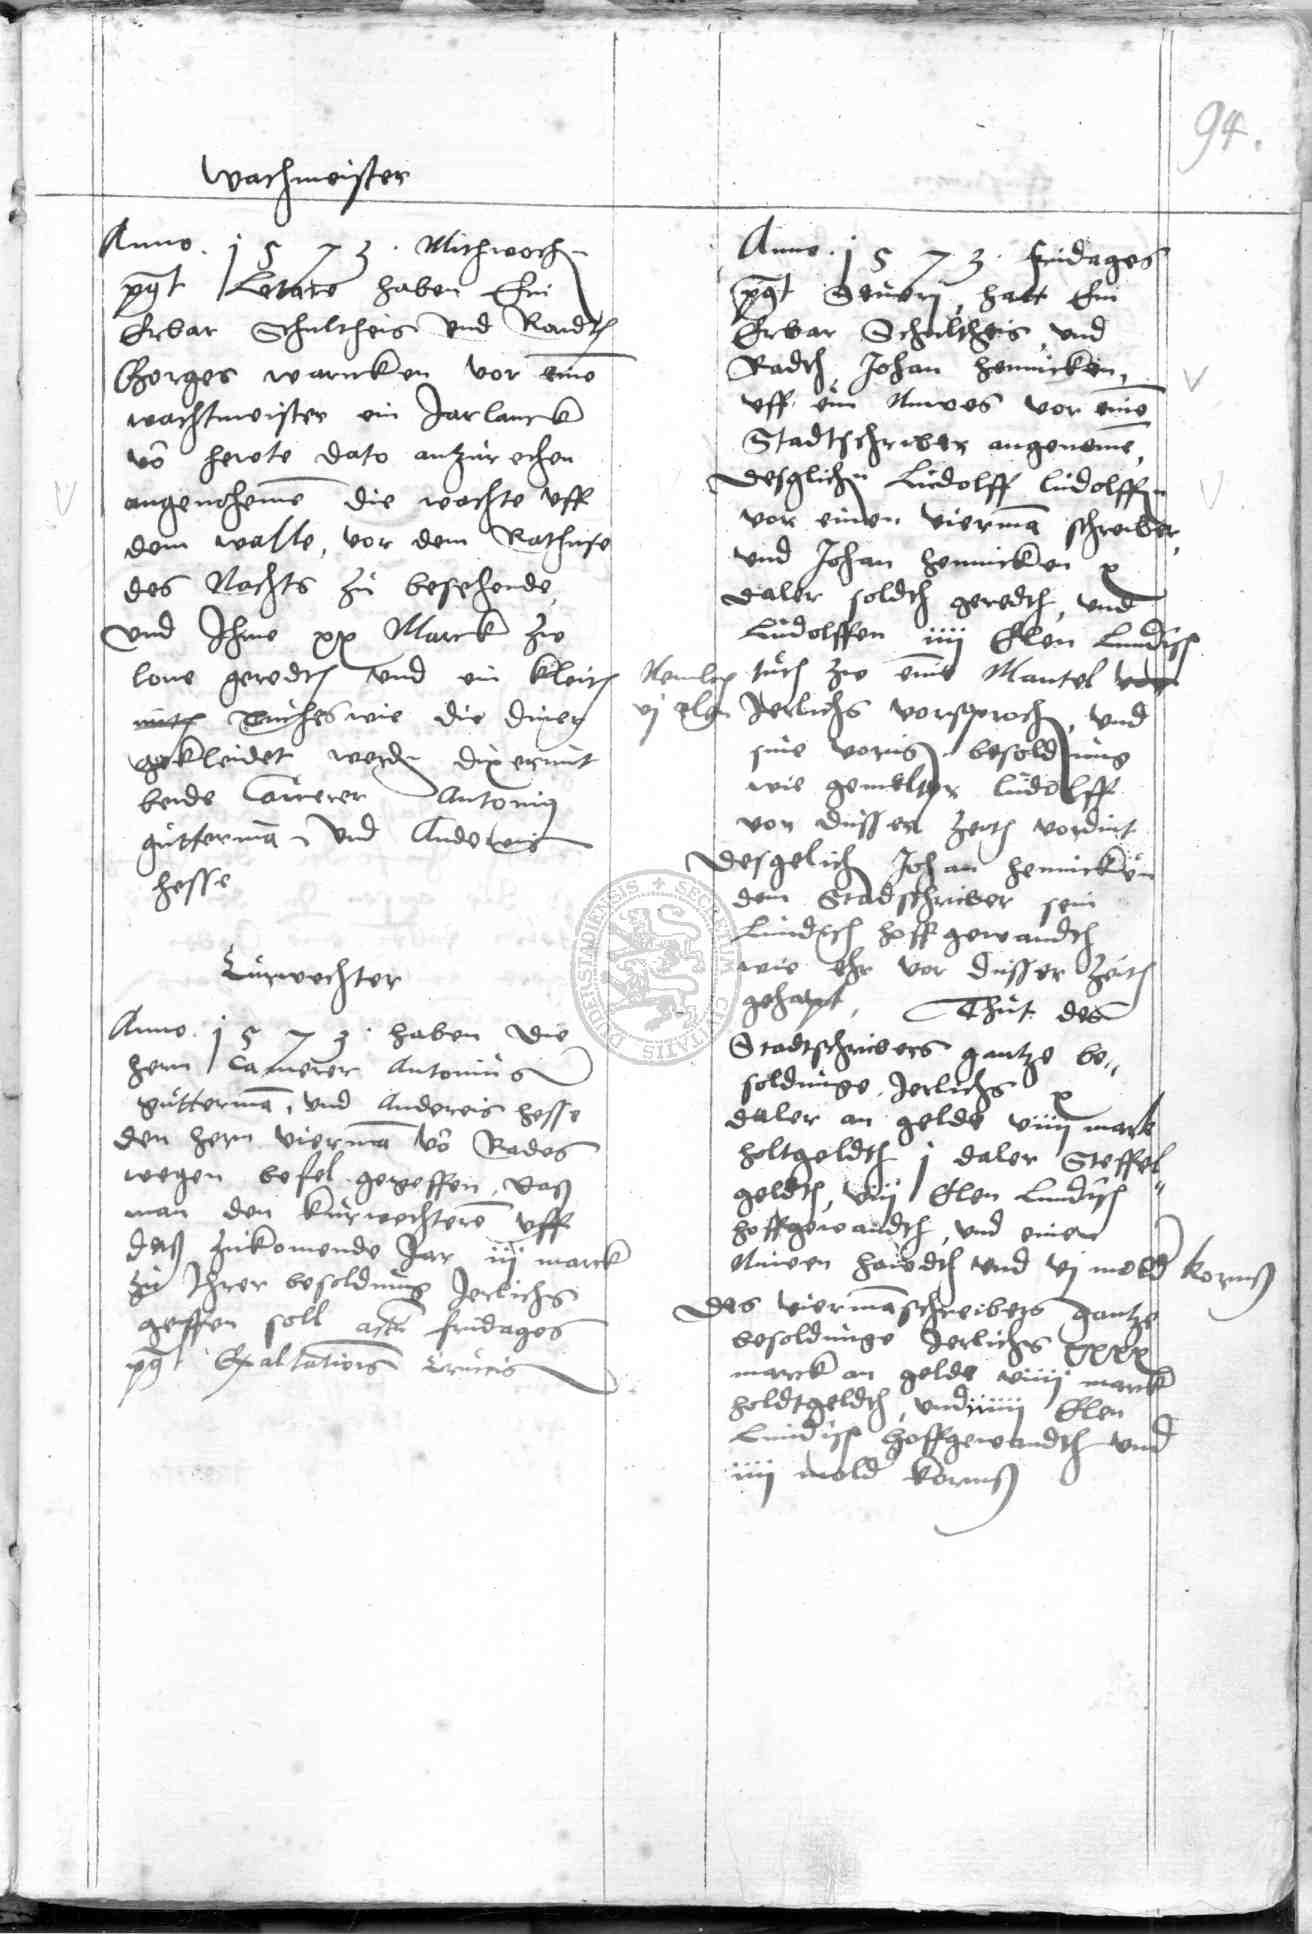 94.
Wachmeister
Anno. 1573. Mithwoch
post Letare haben Ein
Erbar Schultheis und Raudth
Gorges warneken vor eine
wachtmeister ein Jarlanck
vo hewte dato antzurechen
angenohemē die wachte uff
dem walle, vor dem Rathuse
des Nachts zu besehende,
und Ihme xx Marck zu
lone geredth und ein kleith
Tuches wie die diner
gekleidet werdn dixerunt
beide Camerer Antonig
guttermā, und Andereis
Hesse
Kurwechter
Anno. 1573. haben die
hern Camerer Antonius
guttermā, und Andereis Hesse
den hern viermā vō Rades
wegen befel gegeffen, daß
man den kurwechterē uff
daß zukomende Jar iij marck
zu Ihrer besoldung Jerlichs
geffen soll actū fridages
post Exaltationis Crucis
Anno. 1573. fridages
post Severj, hatt Ein
Erbar Schultheis, und
Radth, Johan Hennicken,
uff ein Nuwes vor einē
Stadtschriber angenomē,
desglichn Ludolff ludolffn
vor einen viermā schreiber,
und Johan Hennicken x
daler soldth geredth, und
Ludolffen iiij Elen Lundisch
Nemlich
vj elen
tuch zu einē Mantel
Jerlichs vorsproch, und
sine vorig besoldung
wie gemelter ludolff
vor dusser Zeith vordint
desgelich Johan Hennicken
dem Stadschriber sein
Lundisch hoffgewandth
wie ehr vor dusser Zeith
gehapt, Thut des
Stadtschribers gantze be„
soldunge Jerlichs x
daler an gelde viiij mark
holtgeldth j daler Steffel„
geldth, viij Elen Lundisch
hoffgewandth, und einen
Nuwen hoidth und vj mold kornß
Des viermāschreibers gantze
besoldunge Jerlichs xxxx
marck an gelde viiij marck
holdtgeldth, und iiiiij Elen
Lundisch hoffgewandth und
iiij mold kornß
SECRETUM CIVITATIS DUDERSTADIENSIS